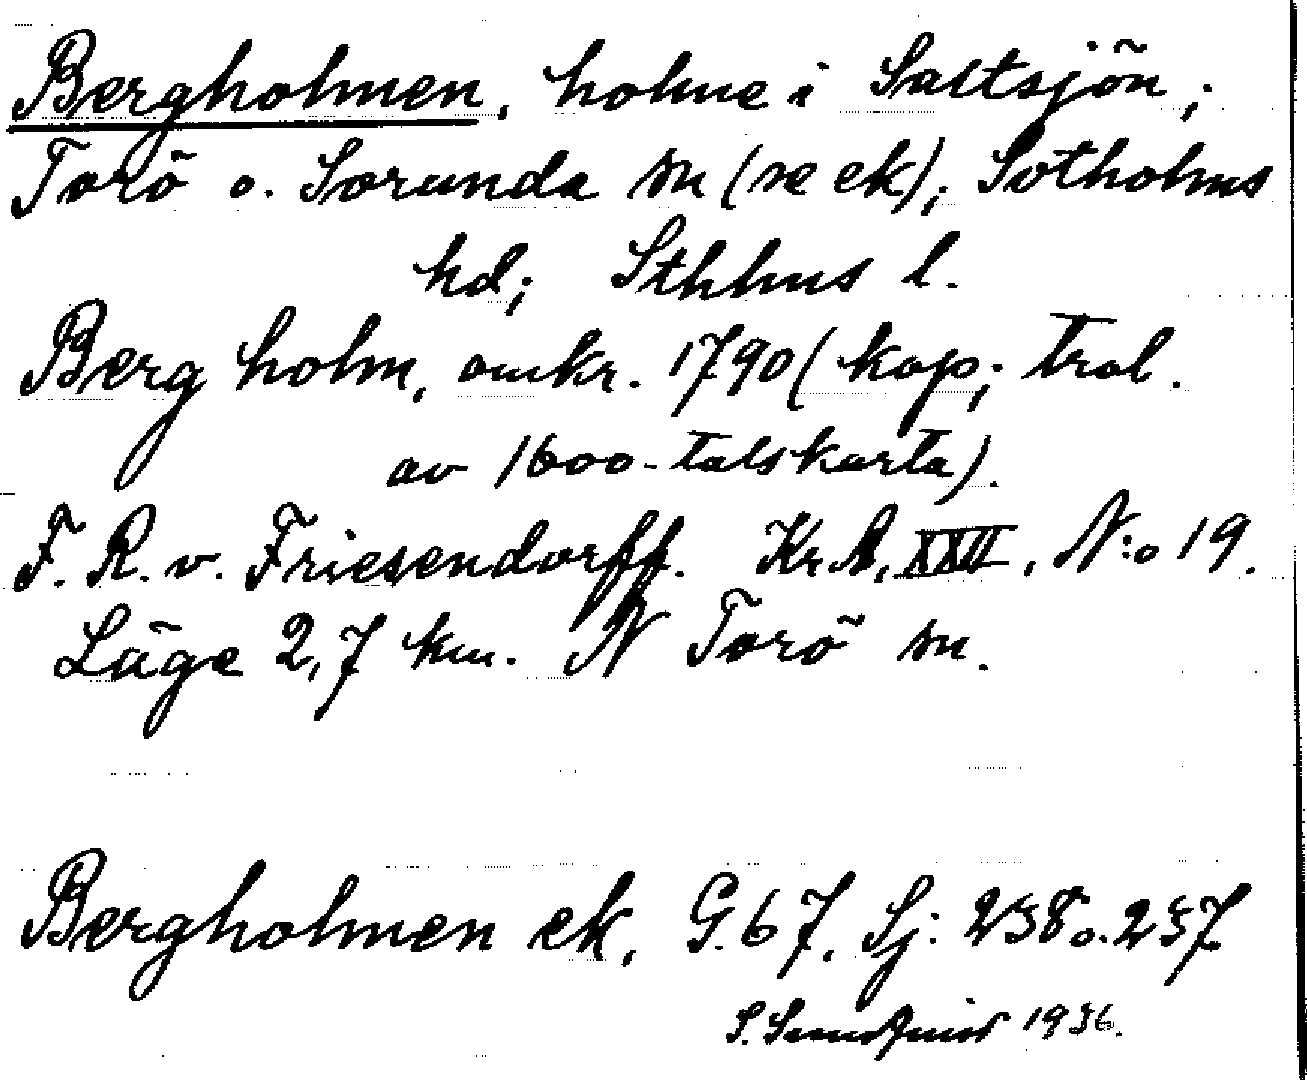 Bergholmen, holme i Saltsjön;
Torö o. Sorunda sn (se ek); Sotholms
hd; Sthlms l.
Berg holm, omkr. 1790 (kop; trol.
av 1600-talskarta).
F. R. v. Friesendorff. Kr.A. XXII, N:o 19.
Läge 2,7 km. N Torö sn.
Bergholmen ek, G. 67. Sj: 238 o. 237
S. 1936.